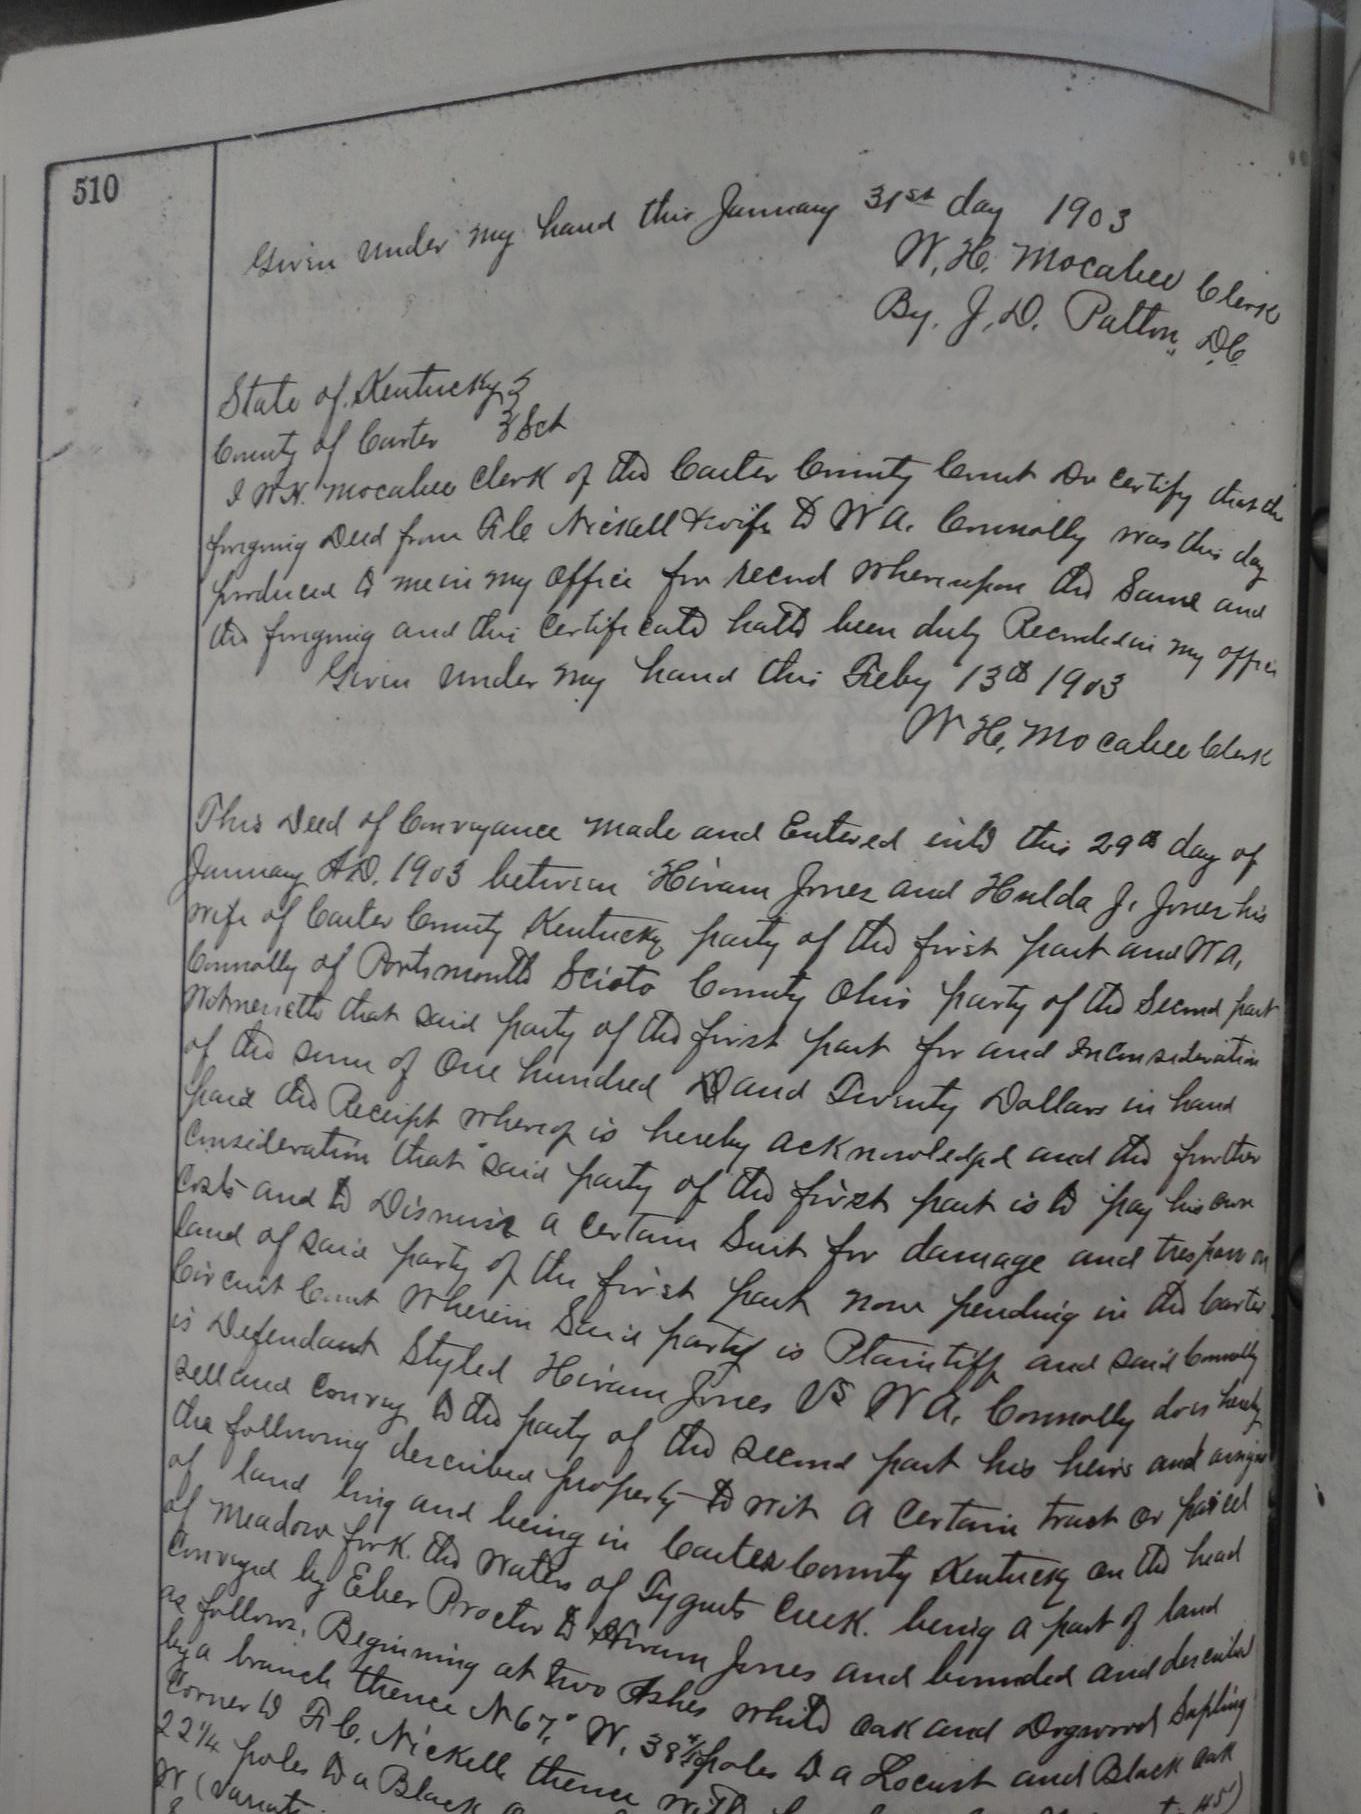 510
Given under my hand this January 31st day 1903
W. H. Mocabee Clerk
By. J. D. Patton, D.C.
State of Kentucky }
County of Carter } Sct
I W.H. Mocabee Clerk of the Carter County Court Do certify that the
foregoing Deed from F. C. Nickell & wife to W A. Connolly was this day
produced to me in my office for record whereupon the Same and
the foregoing and this certificate hath been duly Recorded in my office
Given under my hand this Feby 13th 1903
W H. Mocabee Clerk
This Deed of Conveyance made and Entered into this 29th day of
January A.D. 1903 between Hiram Jones and Hulda J. Jones his
wife of Carter County Kentucky party of the first part and W A.
Connolly of Portsmouth Scioto County Ohio party of the Second part
Witnesseth that said party of the first part for and Inconsideration
of the sum of One hundred and Twenty Dollars in hand
paid the Receipt whereof is hereby acknowledged and the further
consideration that said party of the first part is to pay his own
costs and to Dismiss a certain Suit for damage and trespass on
land of said party of the first part now pending in the Carter
Circuit Court Wherein Said party is Plaintiff and said Connolly
is Defendant Styled Hiram Jones Vs W A. Connolly does hereby
sell and convey to the party of the second part his heirs and assigns
the following described property to wit A certain tract or parcel
of land ling and being in Carter County Kentucky on the head
of Meadow fork the Waters of Tygurts Creek. being a part of land
Conveyed by Eber Proctor to Hiram Jones and bounded and described
as follows. Beginning at two Ashes white oak and Dogwood Sapling
by a branch thence N 67° W. 38 poles to a Locust and Black oak
Corner to F. C. Nickell thence with
22 1/4 poles to a Black
W (